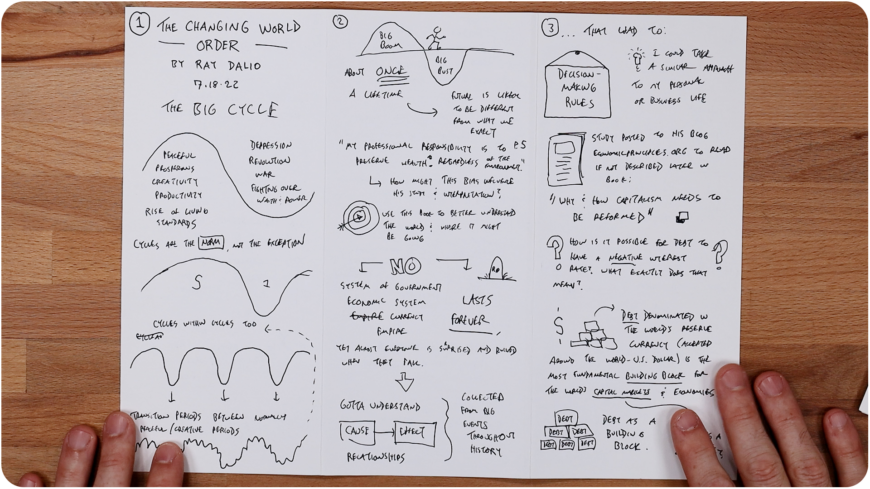 1
THE CHANGING WORLD
ORDER
BY RAY DALIO
7.18.22
THE BIG CYCLE
PEACEFUL
PROSPEROUS
CREATIVITY
PRODUCTIVITY
RISE OF LIVING
STANDARDS
DEPRESSION
REVOLUTION
WAR
FIGHTING OVER
WEALTH + POWER
CYCLES ARE THE NORM, NOT THE EXCEPTION
S
1
CYCLES WITHIN CYCLES TOO
TRANSITION PERIODS BETWEEN
PEACEFUL/CREATIVE PERIODS
2
BIG
BOOM
BIG
BUST
ABOUT ONCE
A LIFETIME
FUTURE IS LIKELY
TO BE DIFFERENT
FROM WHAT WE
EXPECT
"MY PROFESSIONAL RESPONSIBILITY IS TO P.5
PRESERVE WEALTH REGARDLESS OF THE
ENVIRONMENT."
HOW MIGHT THIS BIAS INFLUENCE
HIS STUDY & INTERPRETATION?
USE THIS BOOK TO BETTER UNDERSTAND
THE WORLD & WHERE IT MIGHT
BE GOING
NO
SYSTEM OF GOVERNMENT
ECONOMIC SYSTEM
EMPIRE CURRENCY
EMPIRE
RIP
LASTS
FOREVER
YET ALMOST EVERYONE IS SURPRISED AND RUINED
WHEN THEY FAIL.
GOTTA UNDERSTAND
CAUSE EFFECT
RELATIONSHIPS
COLLECTED
FROM BIG
EVENTS
THROUGHOUT
HISTORY
3 ... THAT LEAD TO:
DECISION-
MAKING
RULES
I COULD TAKE
A SIMILAR APPROACH
TO MY PERSONAL
OR BUSINESS LIFE
STUDY POSTED TO HIS BLOG
ECONOMICPRINCIPLES.ORG TO READ
IF NOT DESCRIBED LATER IN
BOOK:
"WHY & HOW CAPITALISM NEEDS TO
BE REFORMED"
? HOW IS IT POSSIBLE FOR DEBT TO
HAVE A NEGATIVE INTEREST
RATE? WHAT EXACTLY DOES THAT
MEAN? ?
$
DEBT DENOMINATED IN
THE WORLD'S RESERVE
CURRENCY (ACCEPTED
AROUND THE WORLD - U.S. DOLLAR) IS THE
MOST FUNDAMENTAL BUILDING BLOCK FOR
THE WORLD'S CAPITAL MARKETS & ECONOMIES
DEBT
DEBT DEBT
DEBT DEBT DEBT
DEBT AS A
BUILDING
BLOCK.